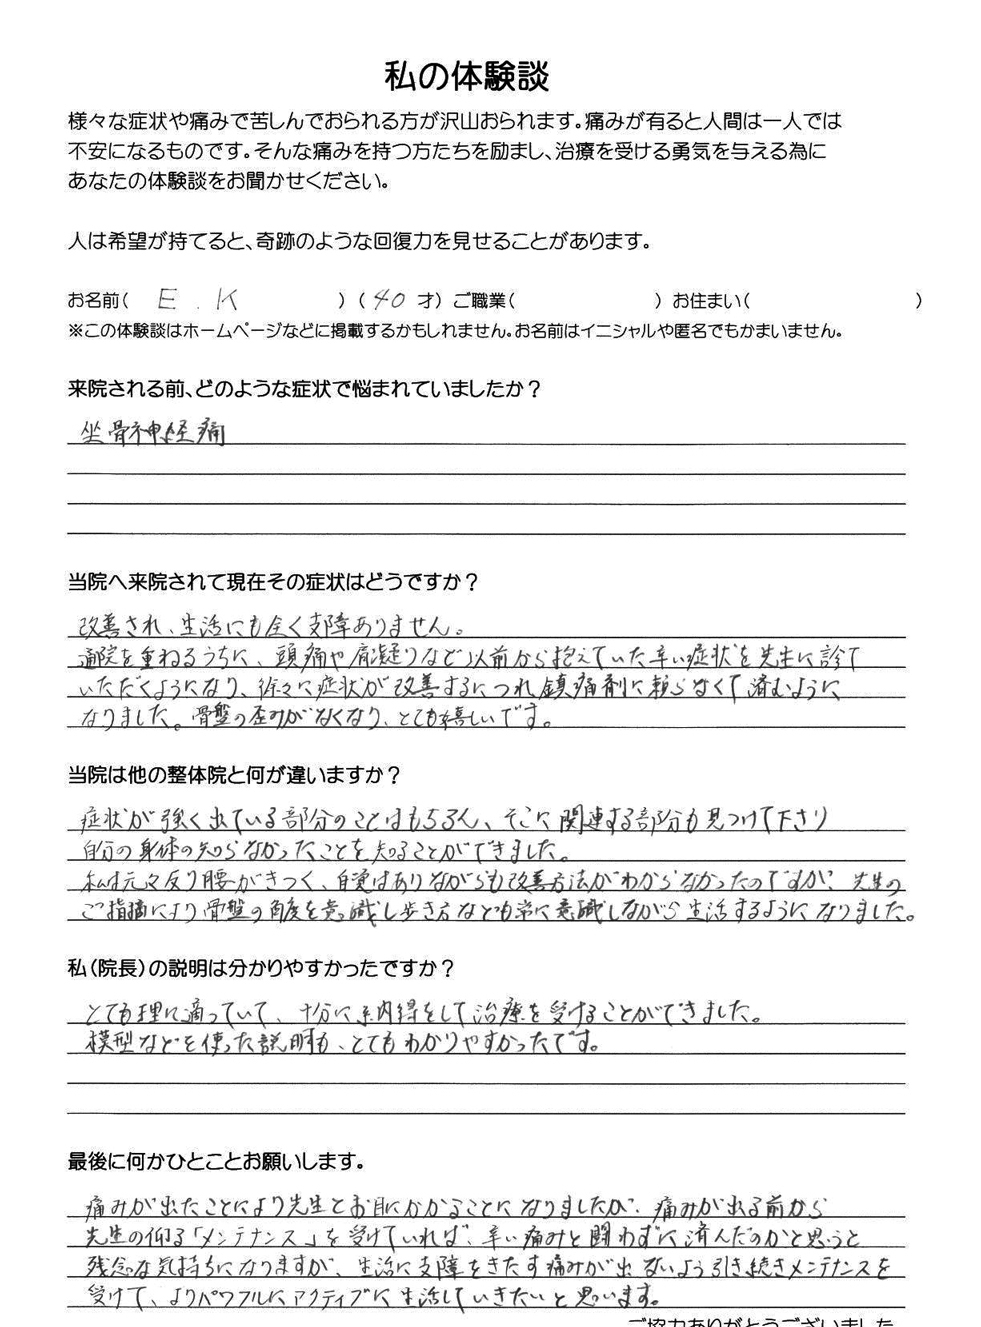 私の体験談
様々な症状や痛みで苦しんでおられる方が沢山おられます。痛みが有ると人間は一人では
不安になるものです。そんな痛みを持つ方たちを励まし、治療を受ける勇気を与える為に
あなたの体験談をお聞かせください。
人は希望が持てると、奇跡のような回復力を見せることがあります。
お名前( E.K )(40才)ご職業( )お住まい( )
※この体験談はホームページなどに掲載するかもしれません。お名前はイニシャルや匿名でもかまいません。
来院される前、どのような症状で悩まれていましたか？
坐骨神経痛
当院へ来院されて現在その症状はどうですか？
改善され、生活にも全く支障ありません。
通院を重ねるうちに、頭痛や肩凝りなど以前から抱えていた辛い症状を先生に診て
いただくようになり、徐々に症状が改善するにつれ鎮痛剤に頼らなくて済むように
なりました。骨盤の歪みがなくなり、とても嬉しいです。
当院は他の整体院と何が違いますか？
症状が強く出ている部分のことはもちろん、そこに関連する部分も見つけて下さり
自分の身体の知らなかったことを知ることができました。
私は元々反り腰がきつく、自覚はありながらも改善方法がわからなかったのですが、先生の
ご指摘により骨盤の角度を意識し歩き方なども常に意識しながら生活するようになりました。
私(院長)の説明は分かりやすかったですか？
とても理に適っていて、十分に納得をして治療を受けることができました。
模型などを使った説明も、とてもわかりやすかったです。
最後に何かひとことお願いします。
痛みが出たことにより先生とお目にかかることになりましたが、痛みが出る前から
先生の仰る「メンテナンス」を受けていれば、辛い痛みと闘わずに済んだのかと思うと
残念な気持ちになりますが、生活に支障をきたす痛みが出ないよう引き続きメンテナンスを
受けて、よりパワフルにアクティブに生活していきたいと思います。
ご協力ありがとうございました